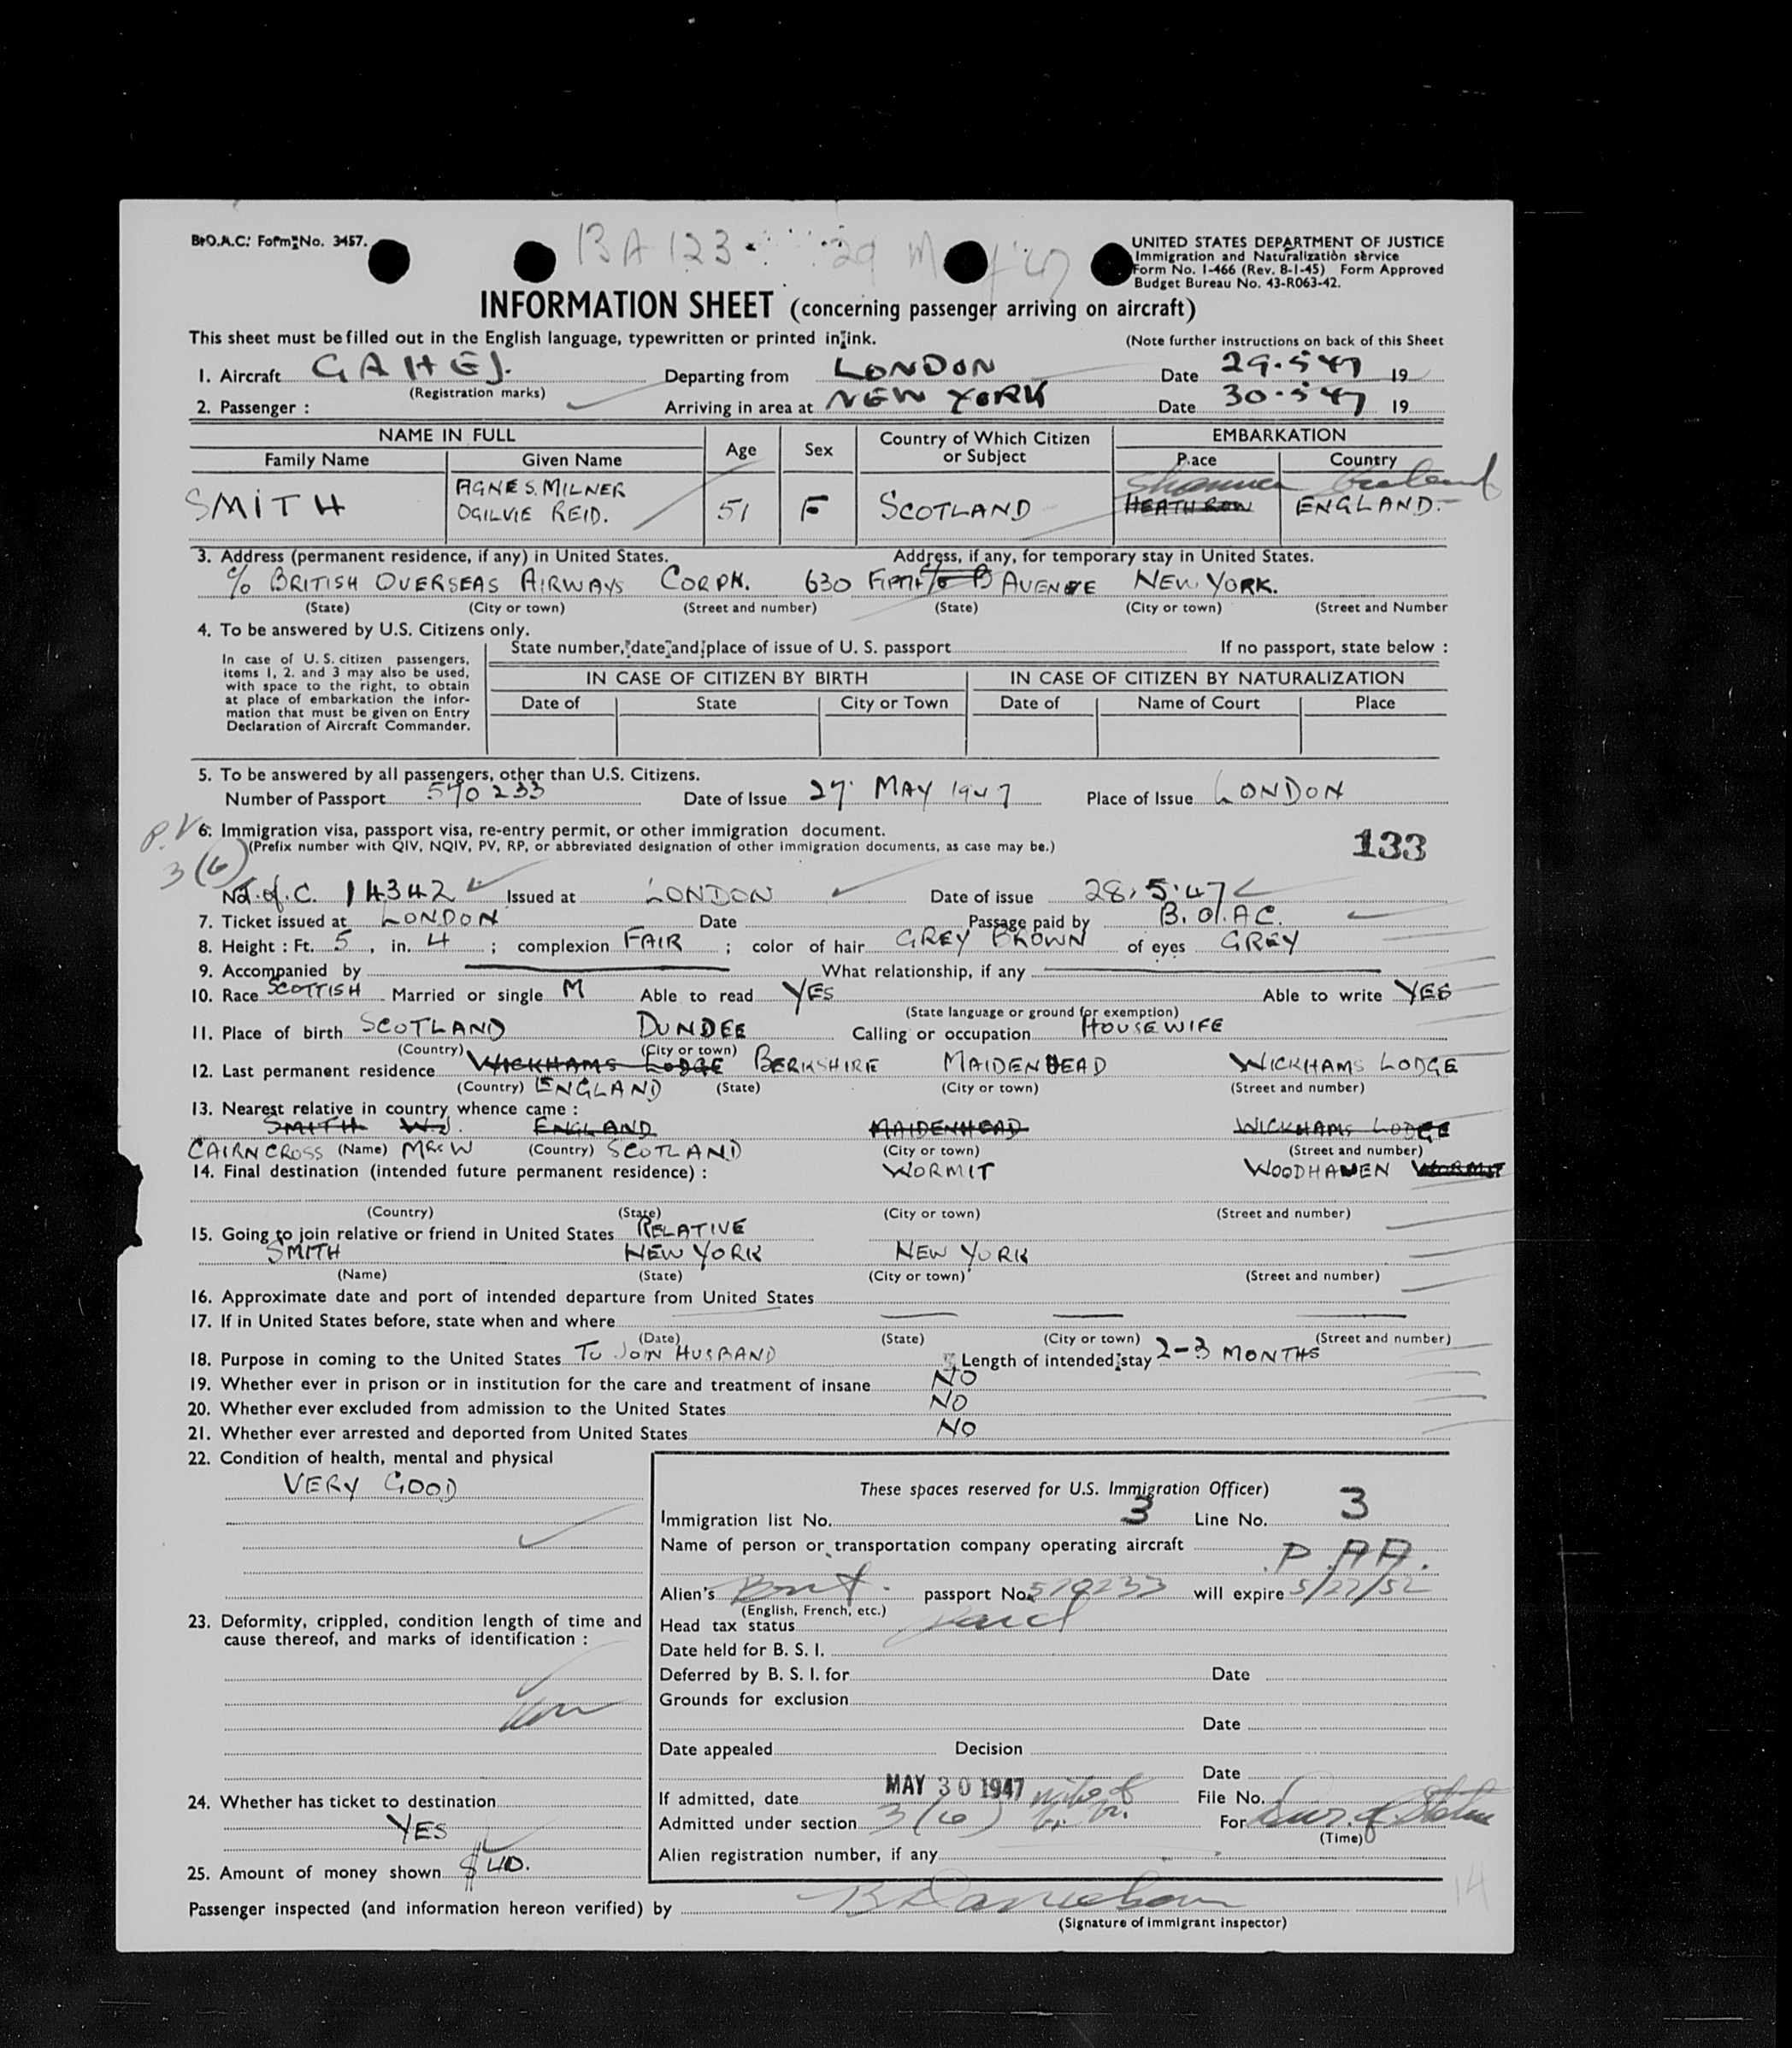 B.O.A.C. Form No. 3457.
BA 123 29 May '47
UNITED STATES DEPARTMENT OF JUSTICE
Immigration and Naturalization service
Form No. I-466 (Rev. 8-1-45) Form Approved
Budget Bureau No. 43-R063-42.
INFORMATION SHEET (concerning passenger arriving on aircraft)
This sheet must be filled out in the English language, typewritten or printed in ink. (Note further instructions on back of this Sheet
1. Aircraft GAHEJ. Departing from LONDON Date 29.5.47 19
(Registration marks)
2. Passenger : Arriving in area at NEW YORK Date 30.5.47 19
NAME IN FULL Age Sex Country of Which Citizen or Subject EMBARKATION
Family Name Given Name Place Country
Shannon Ireland
SMITH AGNES. MILNER OGILVIE REID. 51 F SCOTLAND HEATHROW ENGLAND.
3. Address (permanent residence, if any) in United States. Address, if any, for temporary stay in United States.
c/o BRITISH OVERSEAS AIRWAYS CORPN. 630 FIFTH AVENUE NEW YORK.
(State) (City or town) (Street and number) (State) (City or town) (Street and Number
4. To be answered by U.S. Citizens only.
State number, date and place of issue of U. S. passport If no passport, state below :
In case of U. S. citizen passengers, items 1, 2. and 3 may also be used, with space to the right, to obtain at place of embarkation the information that must be given on Entry Declaration of Aircraft Commander.
IN CASE OF CITIZEN BY BIRTH IN CASE OF CITIZEN BY NATURALIZATION
Date of State City or Town Date of Name of Court Place
5. To be answered by all passengers, other than U.S. Citizens.
Number of Passport 570233 Date of Issue 27. MAY 1947 Place of Issue LONDON
P.V 6. Immigration visa, passport visa, re-entry permit, or other immigration document.
3 (6) (Prefix number with QIV, NQIV, PV, RP, or abbreviated designation of other immigration documents, as case may be.)
133
No. 14342 Issued at LONDON Date of issue 28.5.47
7. Ticket issued at LONDON Date Passage paid by B.O.A.C.
8. Height : Ft. 5, in. 4 ; complexion FAIR ; color of hair GREY BROWN of eyes GREY
9. Accompanied by What relationship, if any
10. Race SCOTTISH Married or single M Able to read YES Able to write YES
(State language or ground for exemption)
11. Place of birth SCOTLAND DUNDEE Calling or occupation HOUSEWIFE
(Country) (City or town)
12. Last permanent residence WICKHAMS LODGE BERKSHIRE MAIDENHEAD WICKHAMS LODGE
(Country) ENGLAND (State) (City or town) (Street and number)
13. Nearest relative in country whence came :
SMITH W.J. ENGLAND MAIDENHEAD WICKHAMS LODGE
CAIRNCROSS (Name) MRS W (Country) SCOTLAND (City or town) (Street and number)
WORMIT WOODHAVEN WORMIT
14. Final destination (intended future permanent residence) :
(Country) (State) (City or town) (Street and number)
15. Going to join relative or friend in United States RELATIVE
SMITH NEW YORK NEW YORK
(Name) (State) (City or town) (Street and number)
16. Approximate date and port of intended departure from United States
17. If in United States before, state when and where
(Date) (State) (City or town) (Street and number)
18. Purpose in coming to the United States TO JOIN HUSBAND Length of intended stay 2-3 MONTHS
19. Whether ever in prison or in institution for the care and treatment of insane NO
20. Whether ever excluded from admission to the United States NO
21. Whether ever arrested and deported from United States NO
22. Condition of health, mental and physical
VERY GOOD
These spaces reserved for U.S. Immigration Officer)
Immigration list No. 3 Line No. 3
Name of person or transportation company operating aircraft
P.AA.
Alien's Brit. passport No. 570233 will expire 5/27/52
(English, French, etc.)
23. Deformity, crippled, condition length of time and cause thereof, and marks of identification :
Head tax status Paid
Date held for B. S. I.
Deferred by B. S. I. for Date
Grounds for exclusion
Date
Date appealed Decision
Date
24. Whether has ticket to destination
YES
If admitted, date MAY 30 1947 File No.
Admitted under section 3(6) For Dur. of Status
(Time)
Alien registration number, if any
25. Amount of money shown $40.
14
Passenger inspected (and information hereon verified) by
(Signature of immigrant inspector)